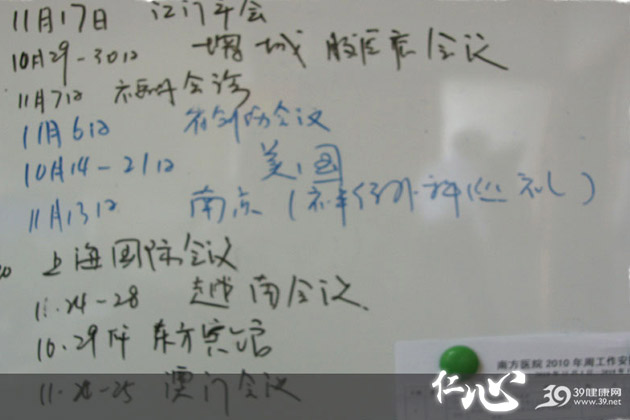 11月17日 江门年会
10月29-30日 增城 会议
11月7日 会诊
11月6日 会议
10月14-21日 美国
11月13日 南京 (神经外科巡礼)
上海国际会议
11.24-28 越南会议
10.29下 东方宾馆
澳门会议
南方医院2010年周工作安
仁心
39健康网
www.39.net